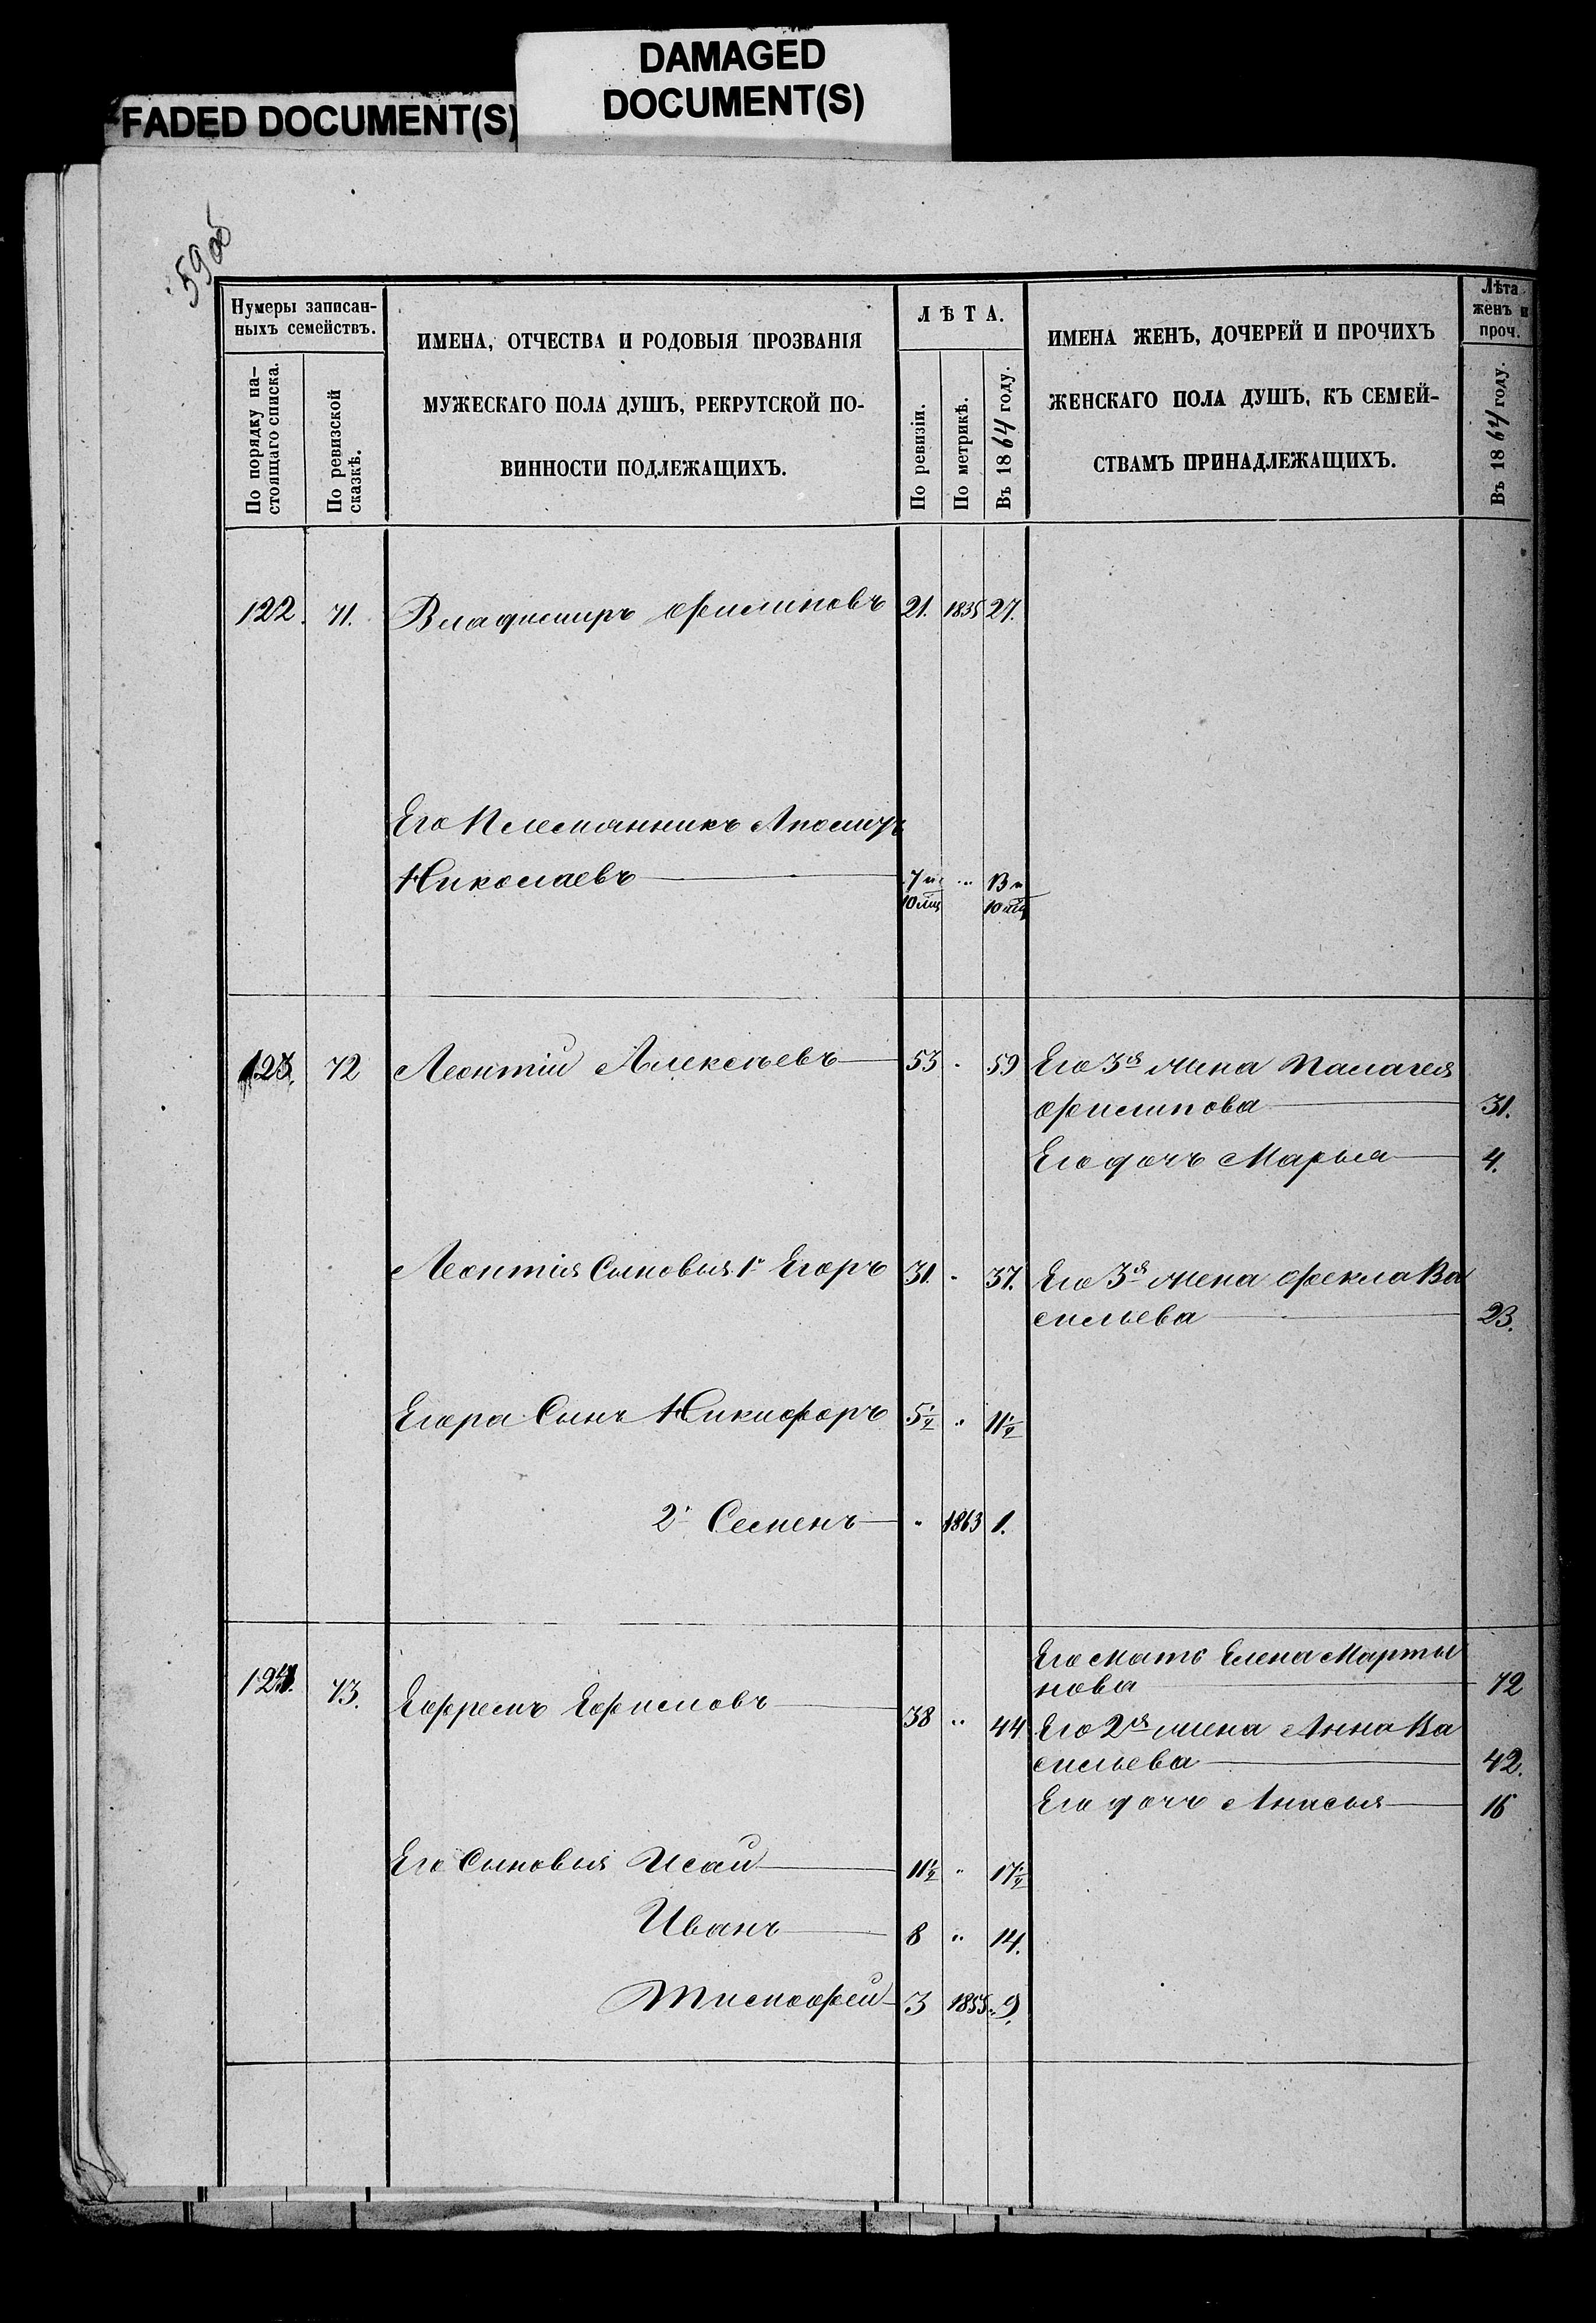 DAMAGED
DOCUMENT(S)
FADED DOCUMENT(S)
59 об
Нумеры записан-
ныхъ семействъ.
По порядку на-
стоящаго списка.
По ревизской
сказкѣ.
ИМЕНА, ОТЧЕСТВА И РОДОВЫЯ ПРОЗВАНІЯ
МУЖЕСКАГО ПОЛА ДУШЪ, РЕКРУТСКОЙ ПО-
ВИННОСТИ ПОДЛЕЖАЩИХЪ.
ЛѢТА.
По ревизіи.
По метрикѣ.
Въ 1864 году.
ИМЕНА ЖЕНЪ, ДОЧЕРЕЙ И ПРОЧИХЪ
ЖЕНСКАГО ПОЛА ДУШЪ, КЪ СЕМЕЙ-
СТВАМЪ ПРИНАДЛЕЖАЩИХЪ.
Лѣта
женъ и
проч.
Въ 1864 году.
122. 71. Владимиръ Филиповъ 21. 1835 27.
Его Племянникъ
Николаевъ 7 и 10 мц " 13 и 10 мц
123. 72 Леонтій Алексѣевъ 53 " 59 Его 3я жена Палагея
Филипова 31.
Его дочь Марья 4.
Леонтія Сыновья 1й Егоръ 31. " 37. Его 3я жена Фекла Ва
сильева 23.
Егора Сынъ Никифоръ 5½ " 11½
2й Семенъ " 1863 1.
Его мать Елена Марты
нова 72
124. 73. Ефремъ Ефимовъ 38 " 44 Его 2я жена Анна Ва
сильева 42.
Его дочь Анисья 16
Его Сыновья Исай 11½ " 17½
Иванъ 8 " 14.
Тимофей 3 1855 9.